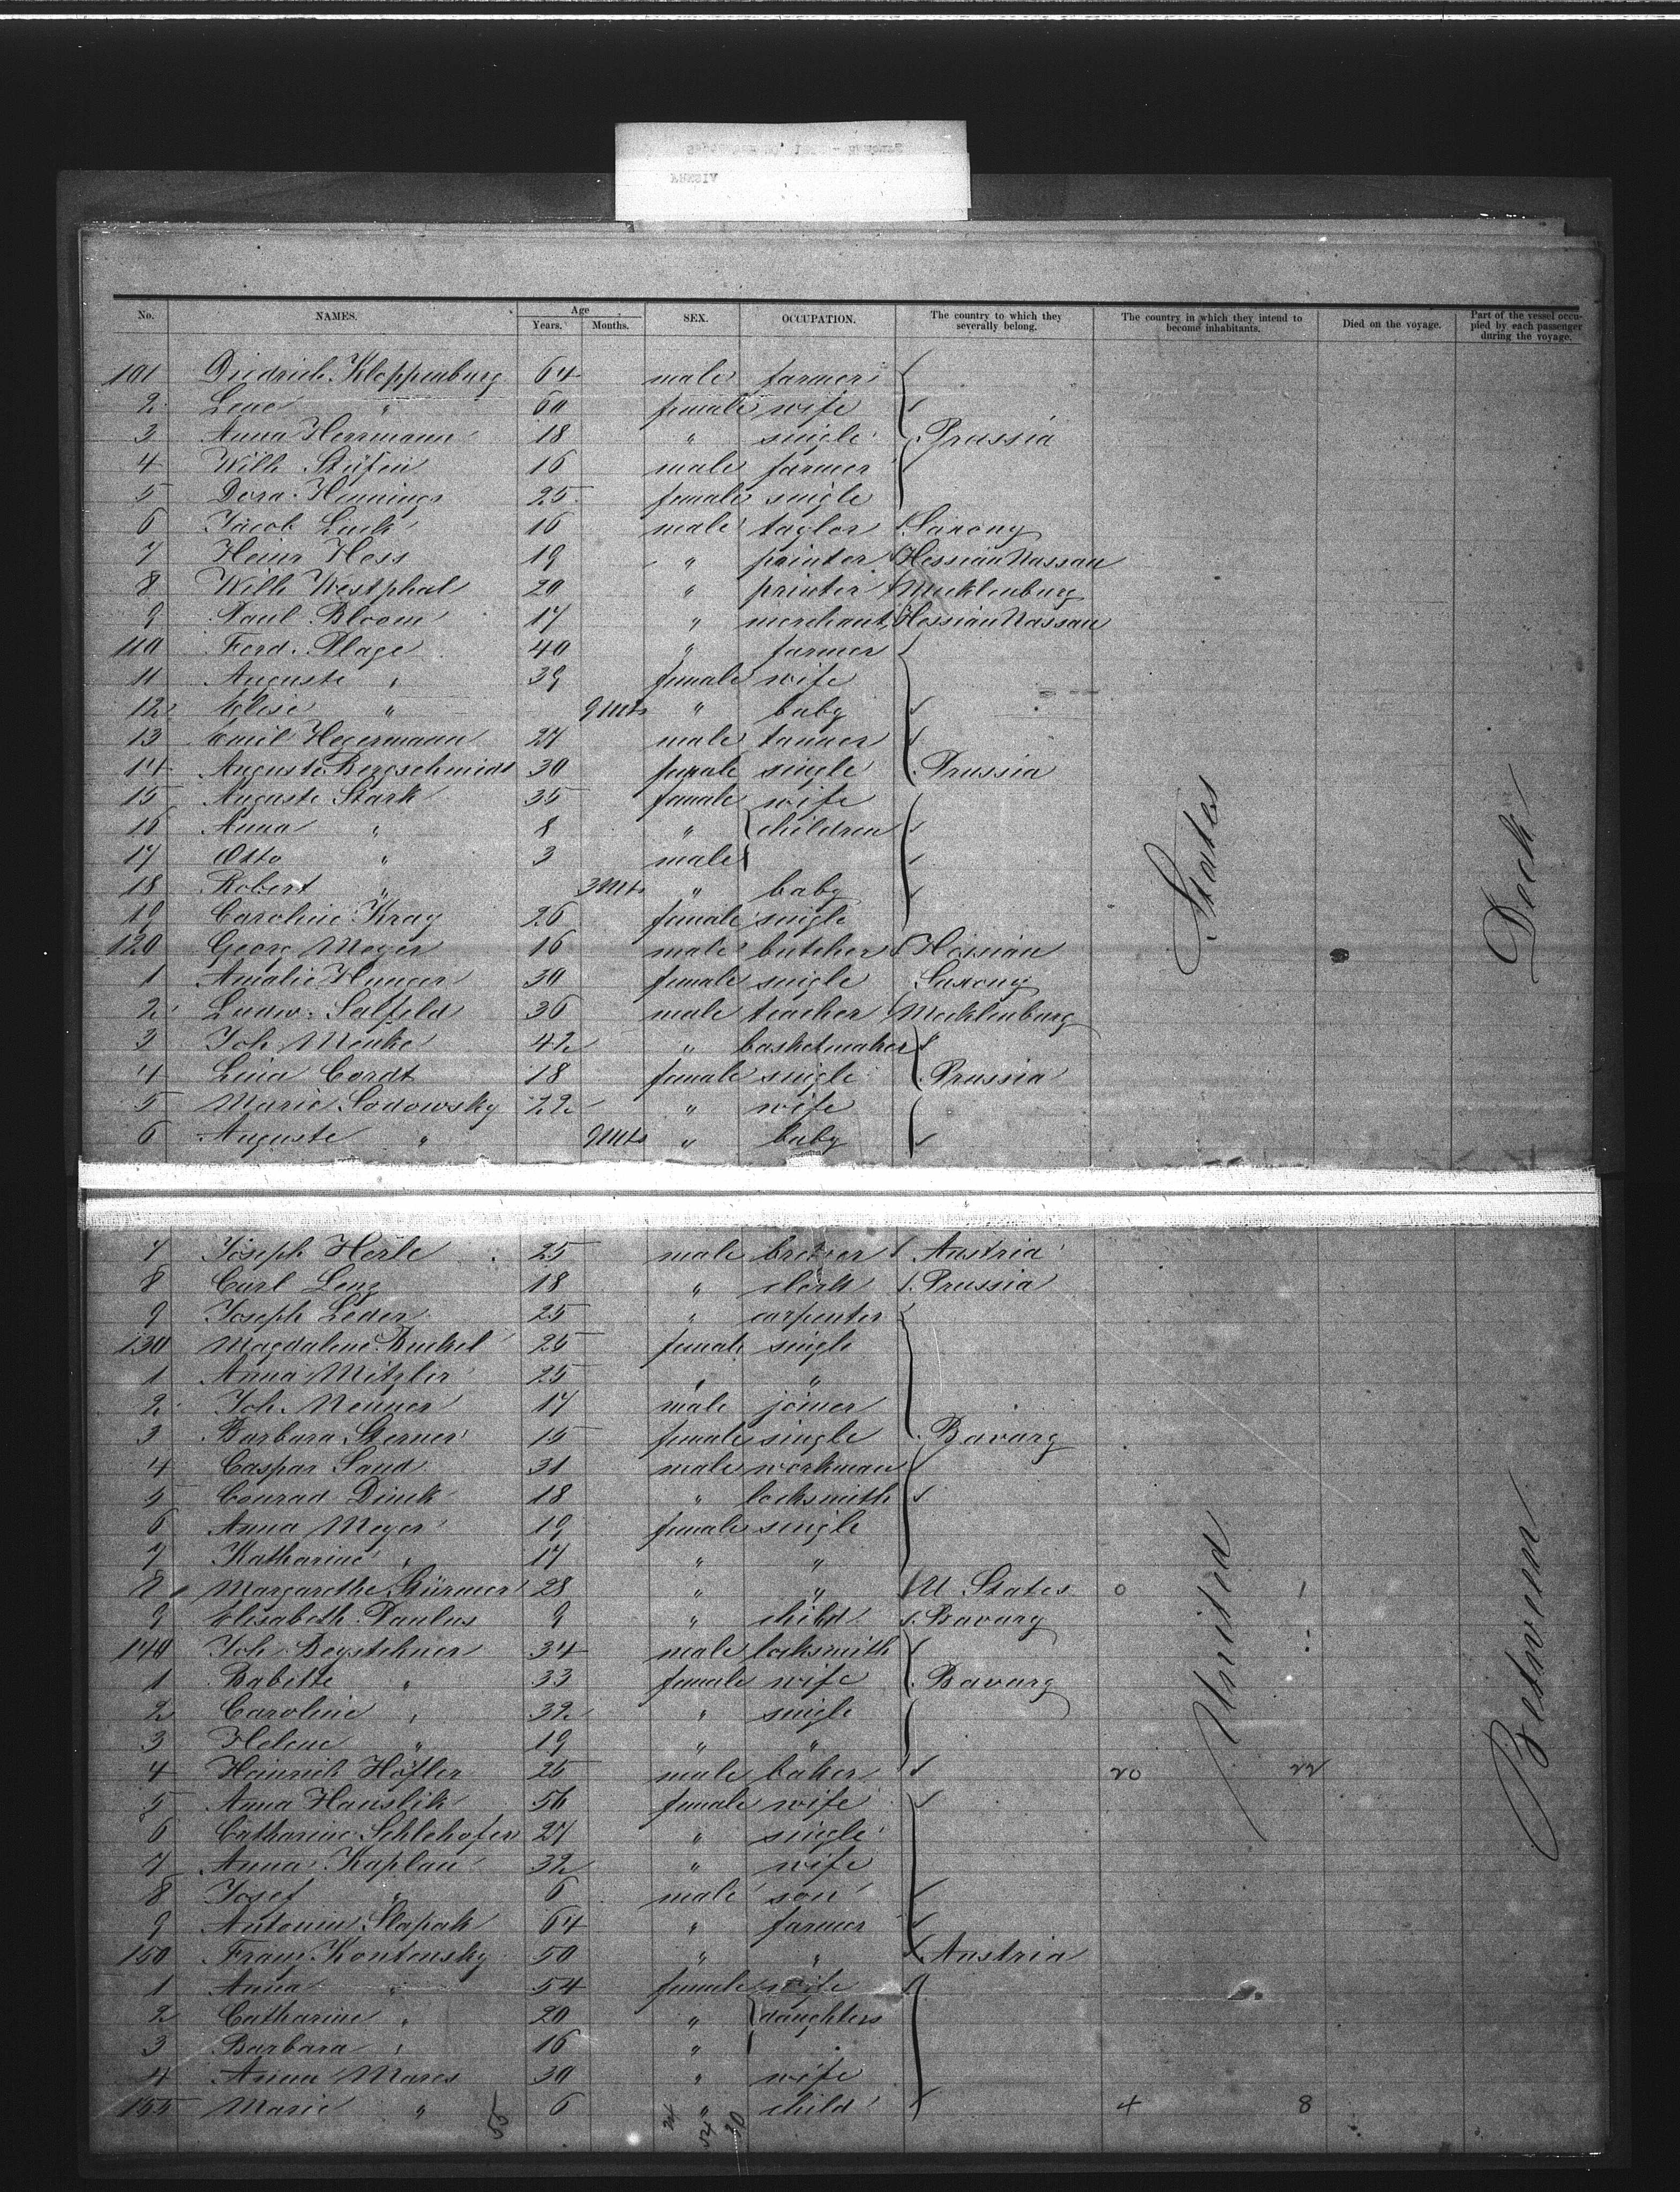 No. NAMES. Age Years. Months. SEX. OCCUPATION. The country to which they severally belong. The country in which they intend to become inhabitants. Died on the voyage. Part of the vessel occupied by each passenger during the voyage.
101 Diedrich Kloppenburg 64 male farmer
2 Lene " 60 female wife
3 Anna Herrmann 18 " single Prussia
4 Wilh Stüfen 16 male farmer
5 Dora Hennings 25 female single
6 Jacob Luck 16 male taylor Saxony
7 Heinr Hess 19 " printer Hessian Nassau
8 Wilh Westphal 20 " printer Mecklenburg
9 Paul Bloom 17 " merchant Hessian Nassau
110 Ferd. Plage 40 " farmer
11 Auguste " 39 female wife
12 Elise " 9 Mts " baby
13 Emil Hegermann 27 male tanner
14 Auguste Bergschmidt 30 female single Prussia
15 Auguste Stark 35 female wife
16 Anna " 8 " children
17 Otto " 3 male
18 Robert " 3 Mts " baby
19 Caroline Kray 26 female single
120 Georg Meyer 16 male butcher Hessian
1 Amalie Hunger 30 female single Saxony
2 Ludw. Salfeld 36 male teacher Mecklenburg
3 Joh Menke 42 " basketmaker
4 Lina Cordt 18 female single Prussia
5 Marie Sodowsky 22 " wife
6 Auguste " 9 Mts " baby
7 Joseph Herle 25 male brewer Austria
8 Carl Lenz 18 " clerk Prussia
9 Joseph Leder 25 " carpenter
130 Magdalene Buckel 25 female single
1 Anna Mitzler 25 " "
2 Joh. Nenner 17 male joiner
3 Barbara Sterner 15 female single Bavarg
4 Caspar Sand 31 male workman
5 Conrad Dinck 18 " locksmith
6 Anna Meyer 19 female single
7 Katharine " 17 " "
8 Margarethe Stürmer 28 " " U. States 0 1
9 Elisabeth Paulus 9 " child Bavarg
140 Joh Beystehner 34 male locksmith
1 Babette " 33 female wife Bavarg
2 Caroline " 32 " single
3 Helene " 19 " "
4 Heinrich Höfler 25 male baker 20 22
5 Anna Hauslik 56 female wife
6 Catharine Schlehofer 27 " single
7 Anna Kaplan 32 " wife
8 Josef " 6 male son
9 Antonin Slapak 64 " farmer
150 Franz Kontensky 50 " " Austria
1 Anna " 54 female wife
2 Catharine " 20 " daughters
3 Barbara " 16 "
4 Anna Mares 30 " wife
155 Marie " 6 " child 4 8
55 54
United States
Between Deck